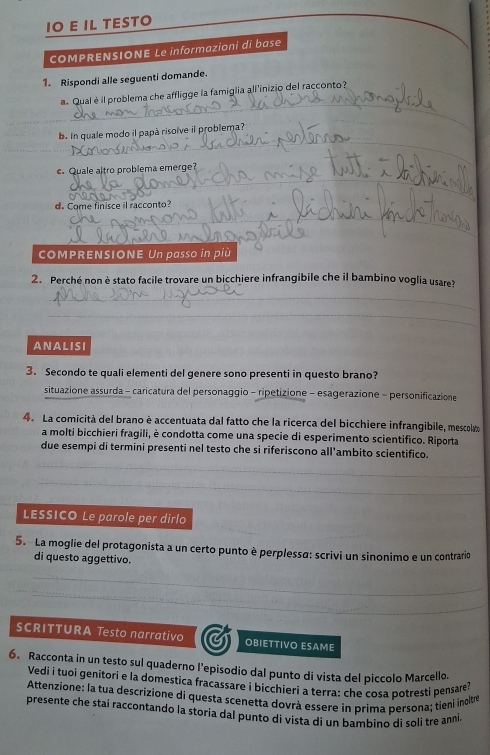 IO E IL TESTO
COMPRENSIONE Le informazioni di base
1. Rispondi alle seguenti domande.
a. Qual è il problema che affligge la famiglia all'inizio del racconto?
che non trovano i bichini infrongibile
b. In quale modo il papà risolve il problema?
bichieri per terra
c. Quale altro problema emerge?
che la domesticha mise tutti i bichieri nella
d. Come finisce il racconto?
che rompono tutti i bichini finche trovano
il bichiere infrongibile
COMPRENSIONE Un passo in più
2. Perché non è stato facile trovare un bicchiere infrangibile che il bambino voglia usare?
perche sono uguali
ANALISI
3. Secondo te quali elementi del genere sono presenti in questo brano?
situazione assurda – caricatura del personaggio – ripetizione – esagerazione – personificazione
4. La comicità del brano è accentuata dal fatto che la ricerca del bicchiere infrangibile, mescolato
a molti bicchieri fragili, è condotta come una specie di esperimento scientifico. Riporta
due esempi di termini presenti nel testo che si riferiscono all'ambito scientifico.
LESSICO Le parole per dirlo
5. La moglie del protagonista a un certo punto è perplessa: scrivi un sinonimo e un contrario
di questo aggettivo.
SCRITTURA Testo narrativo
OBIETTIVO ESAME
6. Racconta in un testo sul quaderno l'episodio dal punto di vista del piccolo Marcello.
Vedi i tuoi genitori e la domestica fracassare i bicchieri a terra: che cosa potresti pensare?
Attenzione: la tua descrizione di questa scenetta dovrà essere in prima persona; tieni inoltre
presente che stai raccontando la storia dal punto di vista di un bambino di soli tre anni.